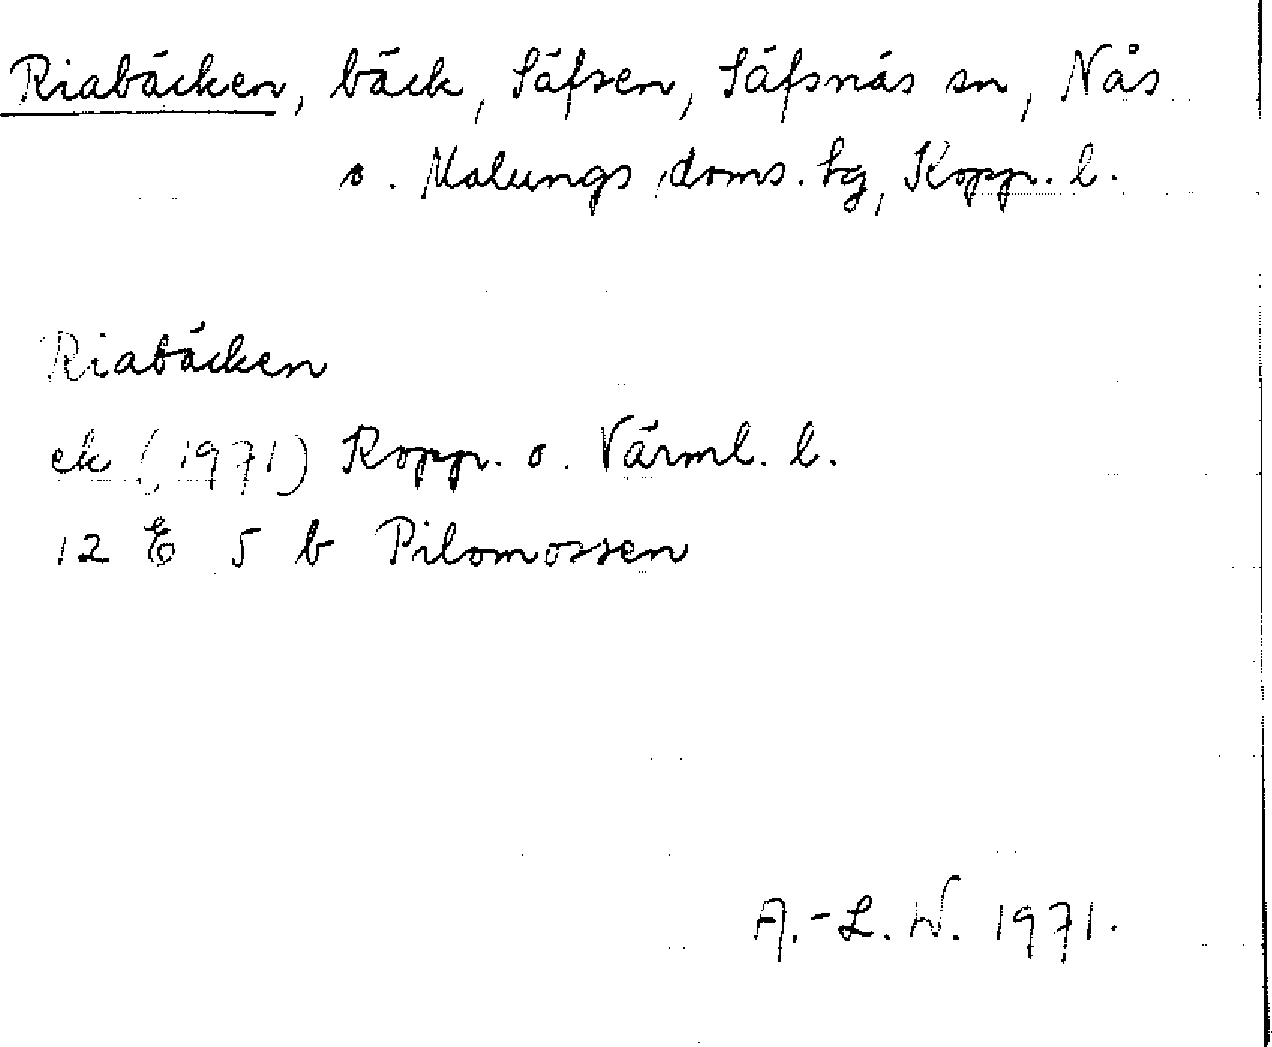 Riabäcken, bäck, Säfsen, Säfsnäs sn, Nås
o. Malungs doms. tg, Kopp. l.
Riabäcken
ek (1971) Kopp. o. Värml. l.
12 E 5 b Pilomossen
A.-L. W. 1971.